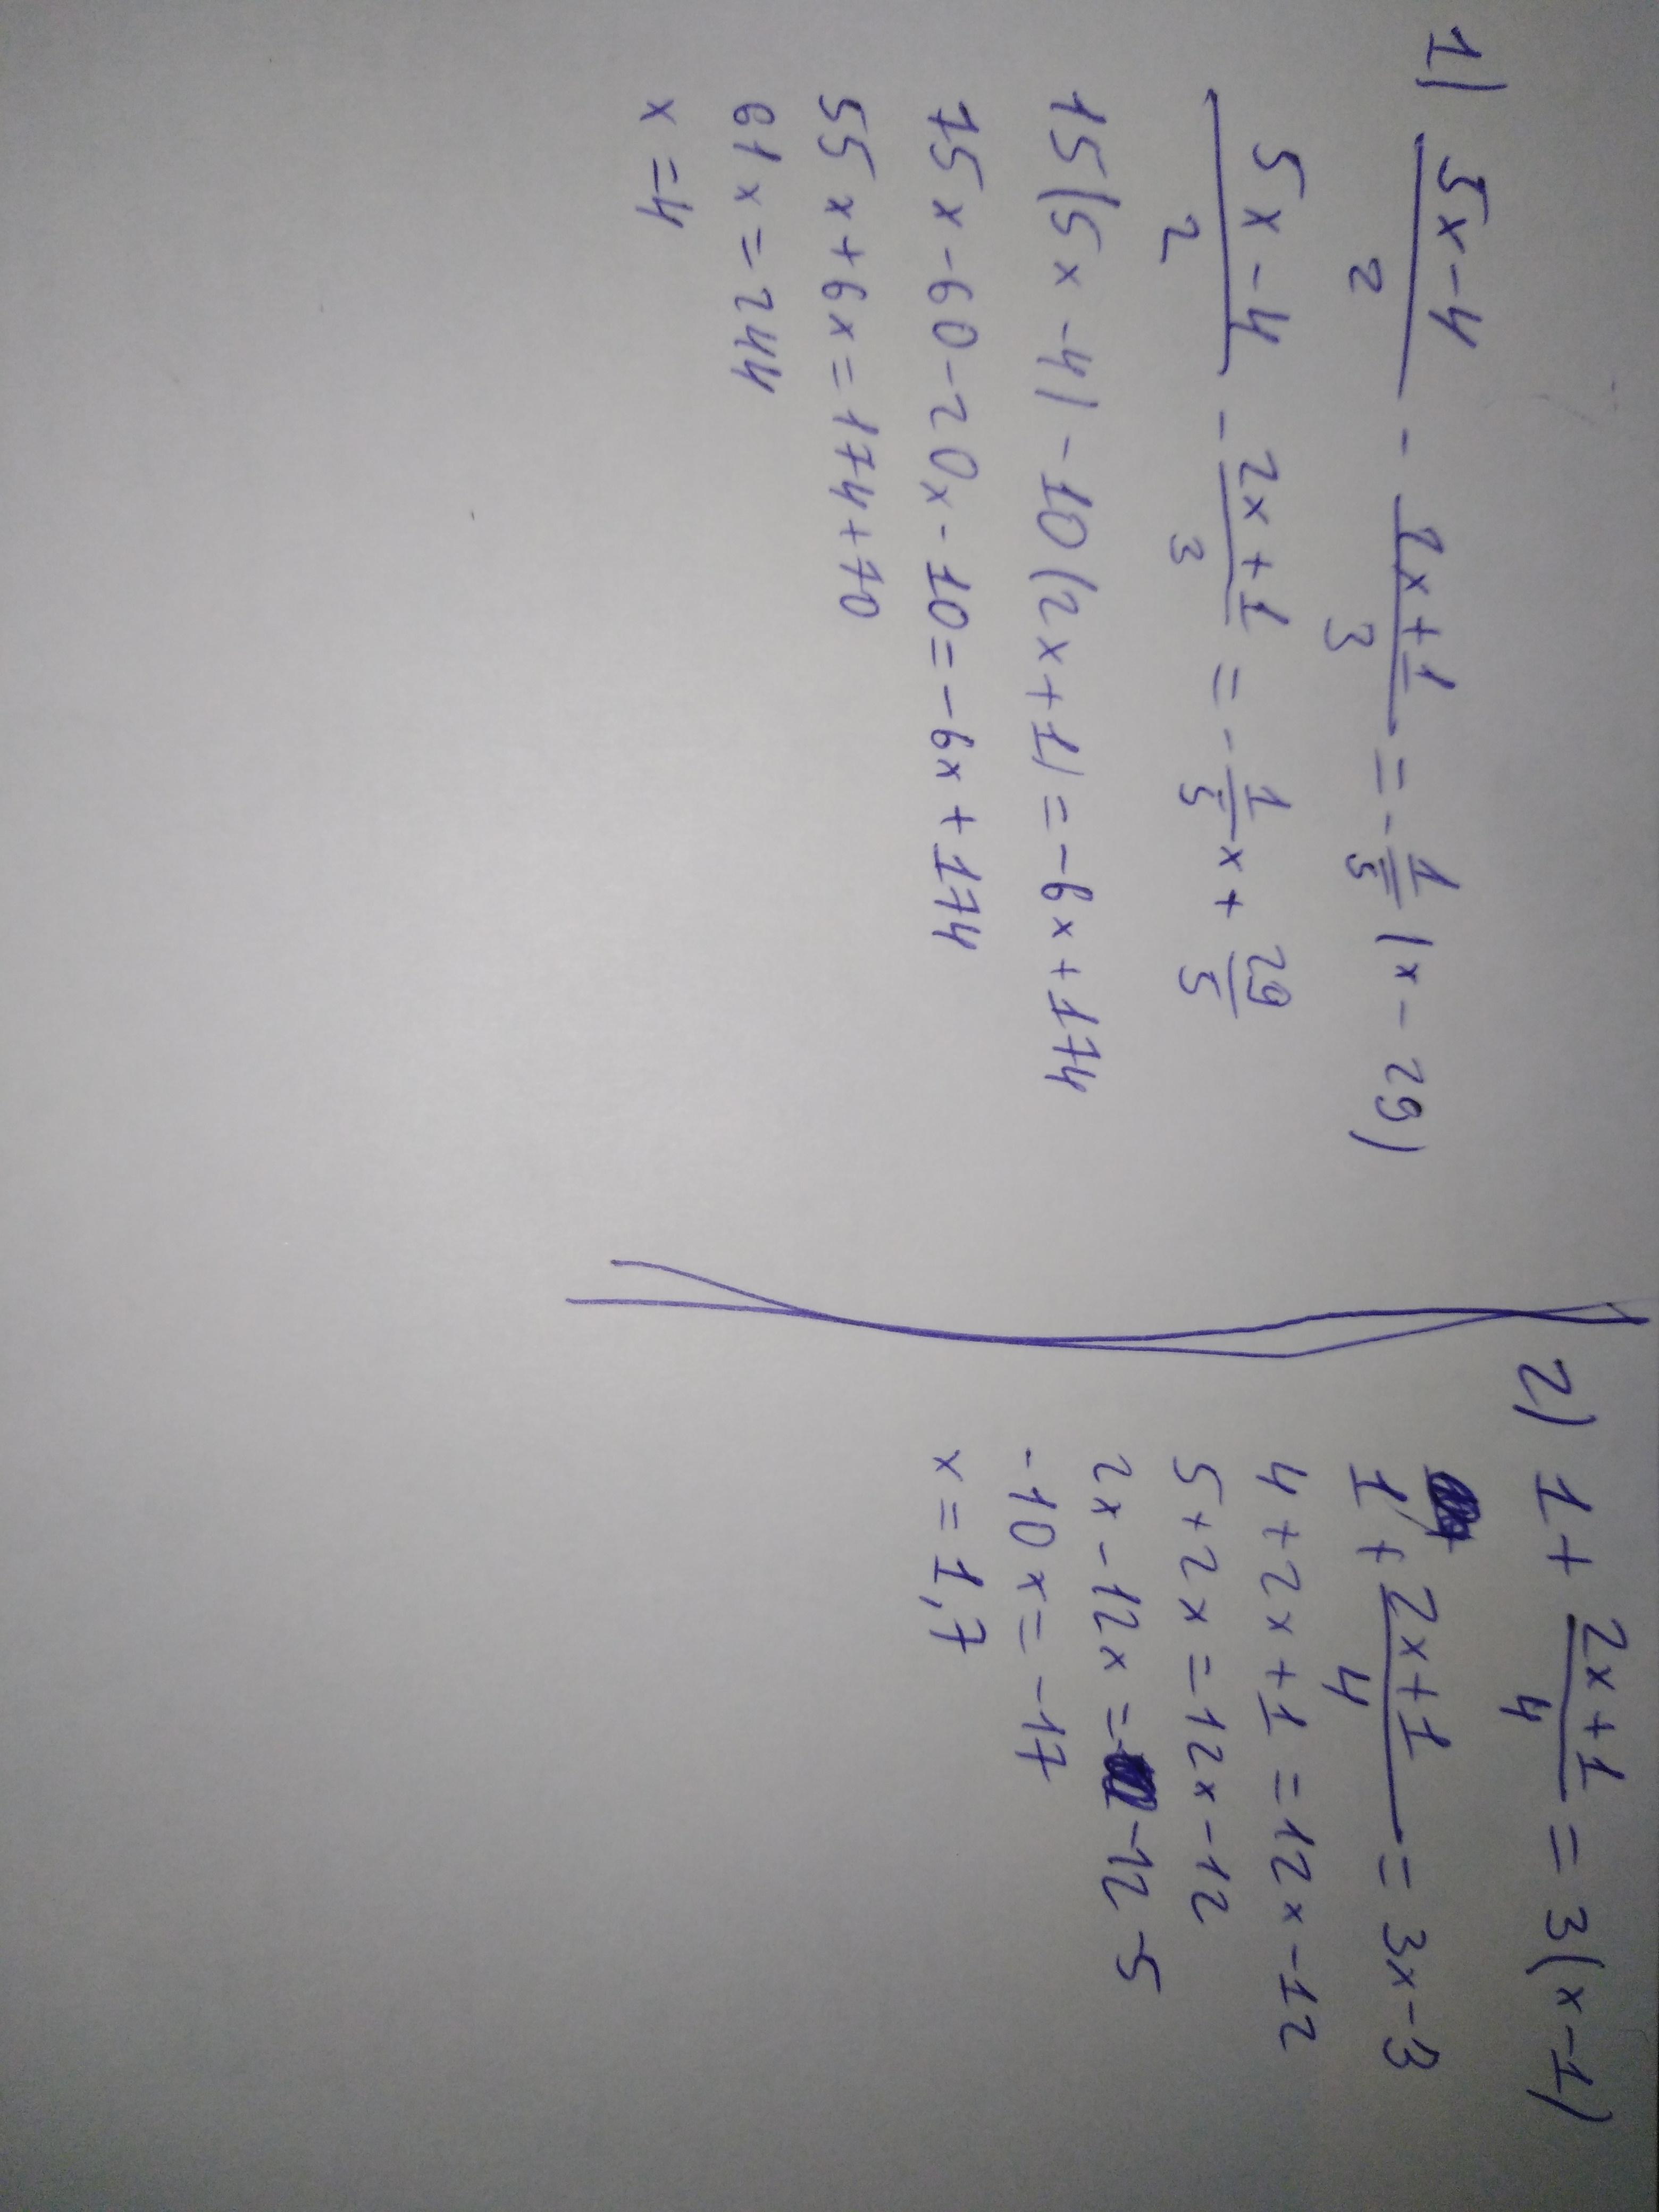 1) (5x-4)/2 - (2x+1)/3 = -1/5 (x-29)
(5x-4)/2 - (2x+1)/3 = -1/5 x + 29/5
15(5x-4) -10(2x+1) = -6x+174
75x-60-20x-10=-6x+174
55x+6x=174+70
61x=244
x=4
2) 1+ (2x+1)/4 = 3(x-1)
1+ (2x+1)/4 = 3x-3
4+2x+1=12x-12
5+2x=12x-12
2x-12x=-12-5
-10x=-17
x=1,7